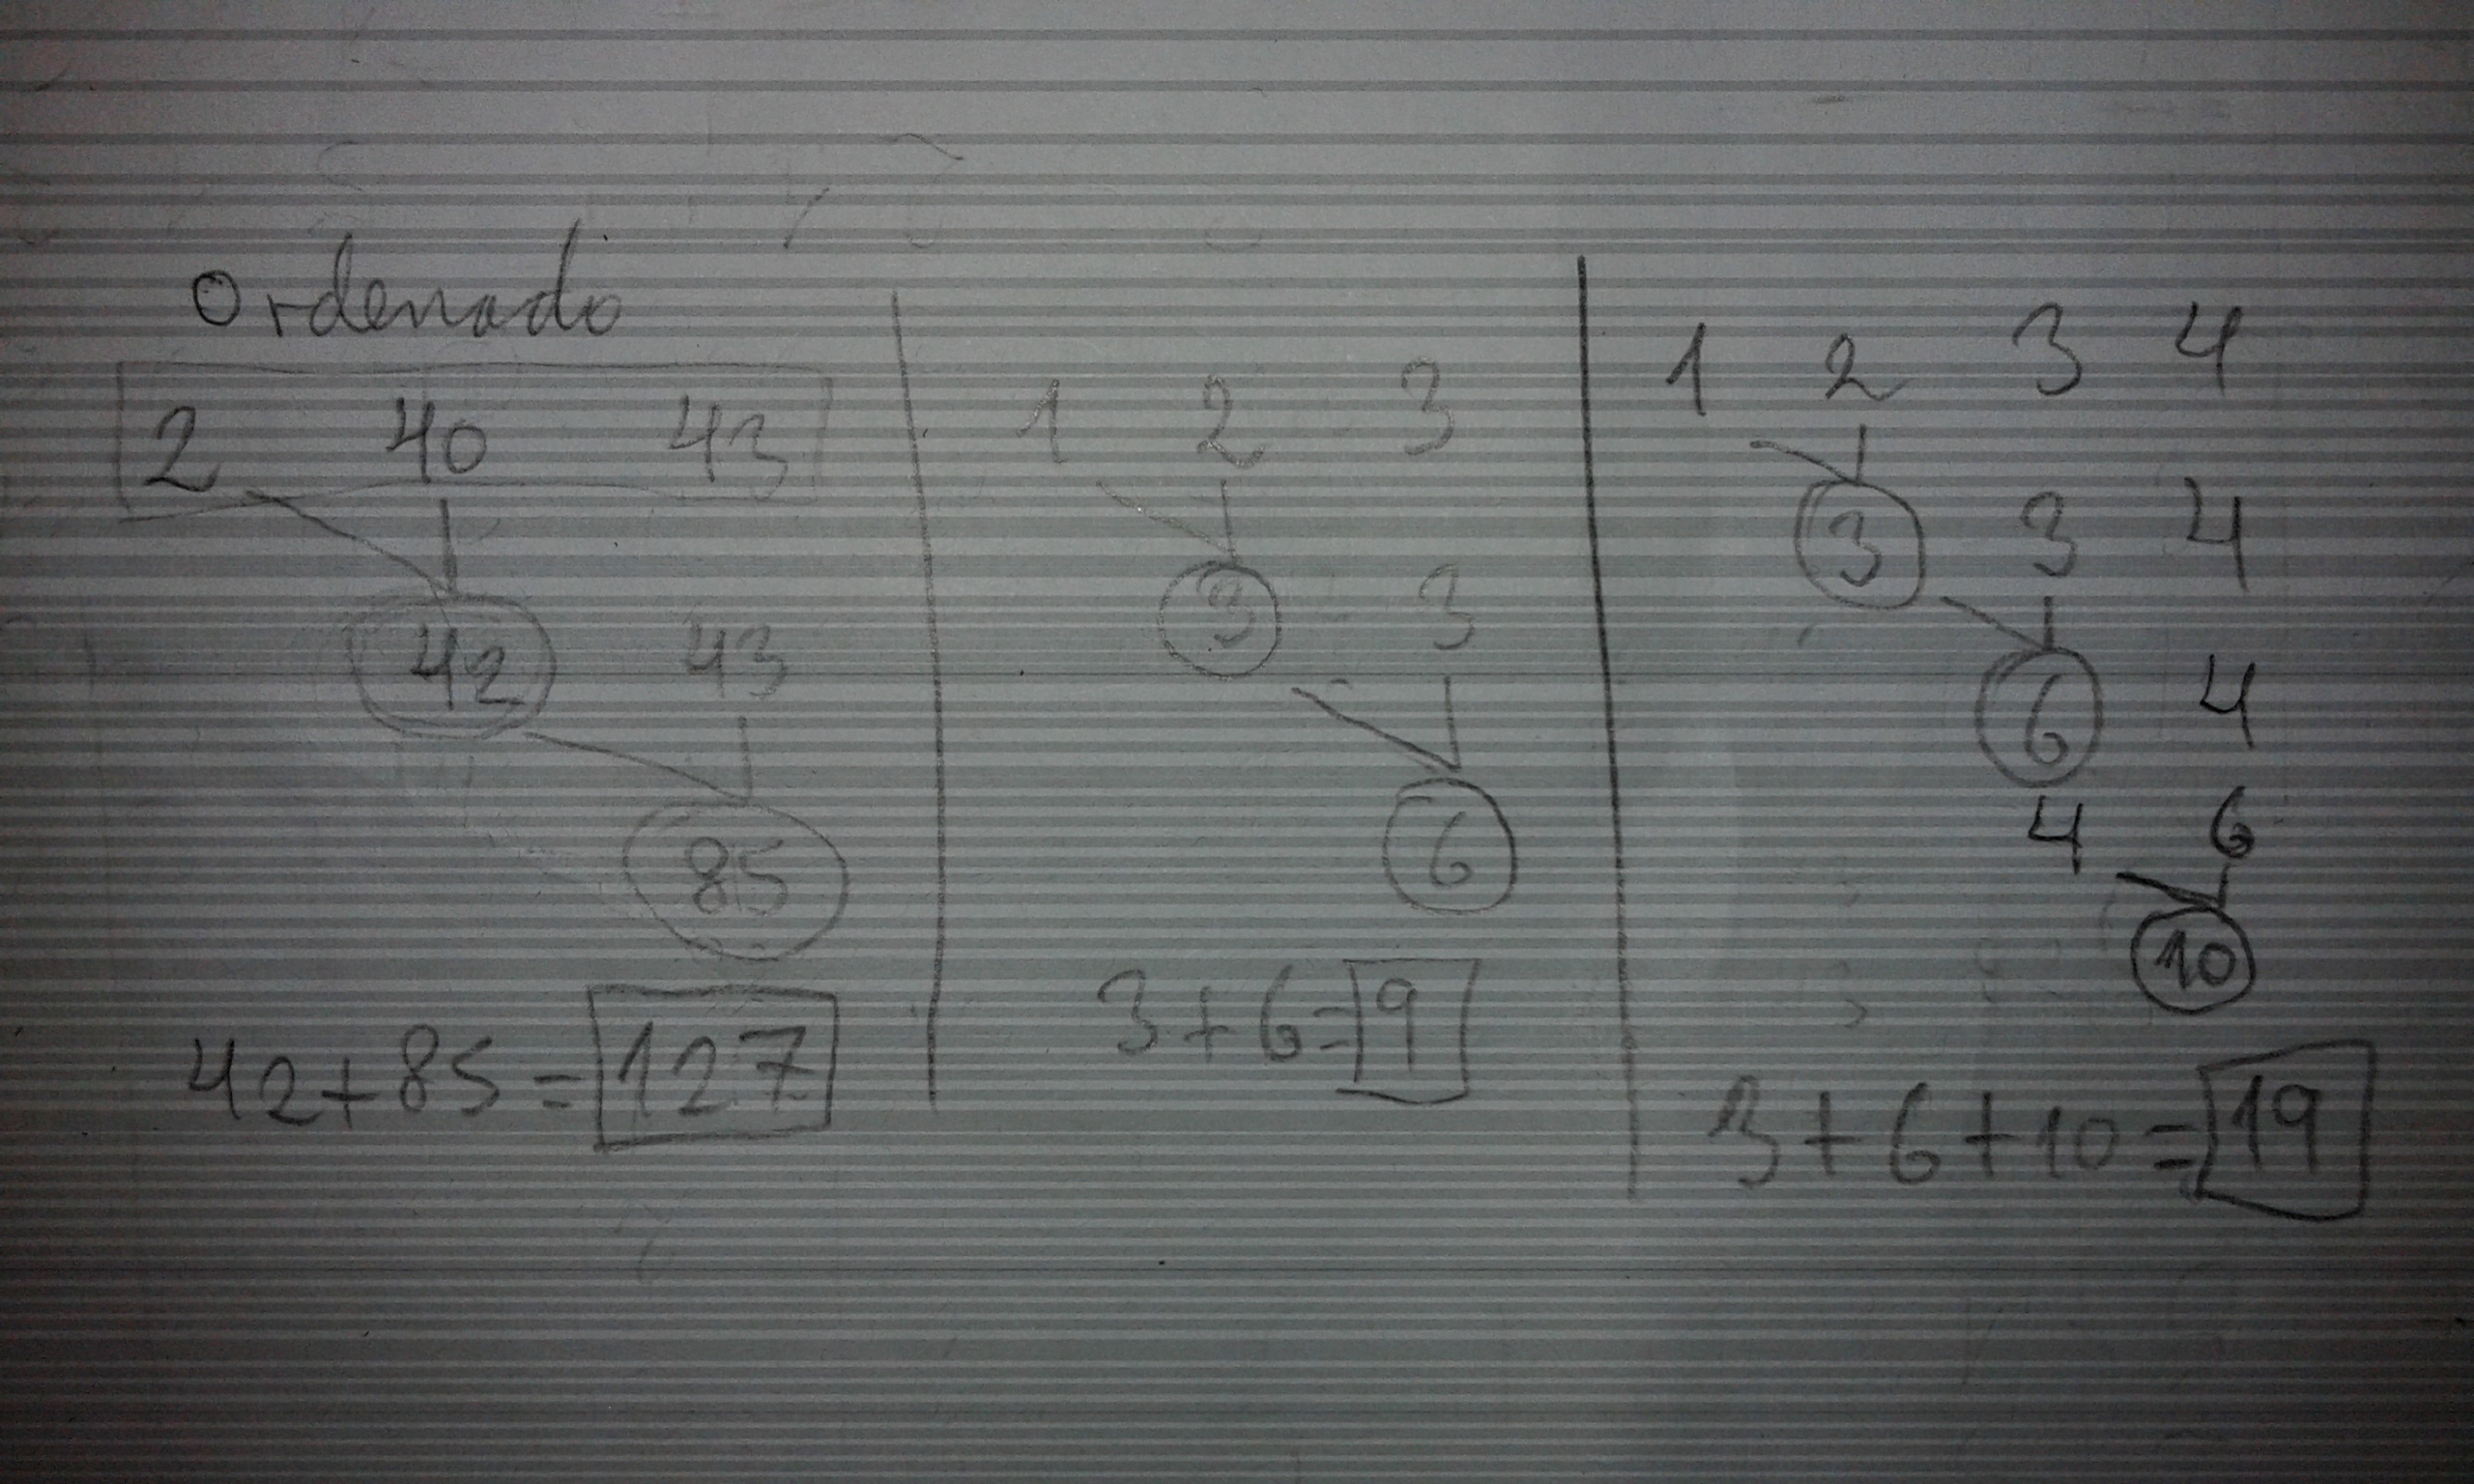 Ordenado
2 40 43
42 43
85
42+85=127
1 2 3
3 3
6
3+6=9
1 2 3 4
3 3 4
6 4
4 6
10
3+6+10=19